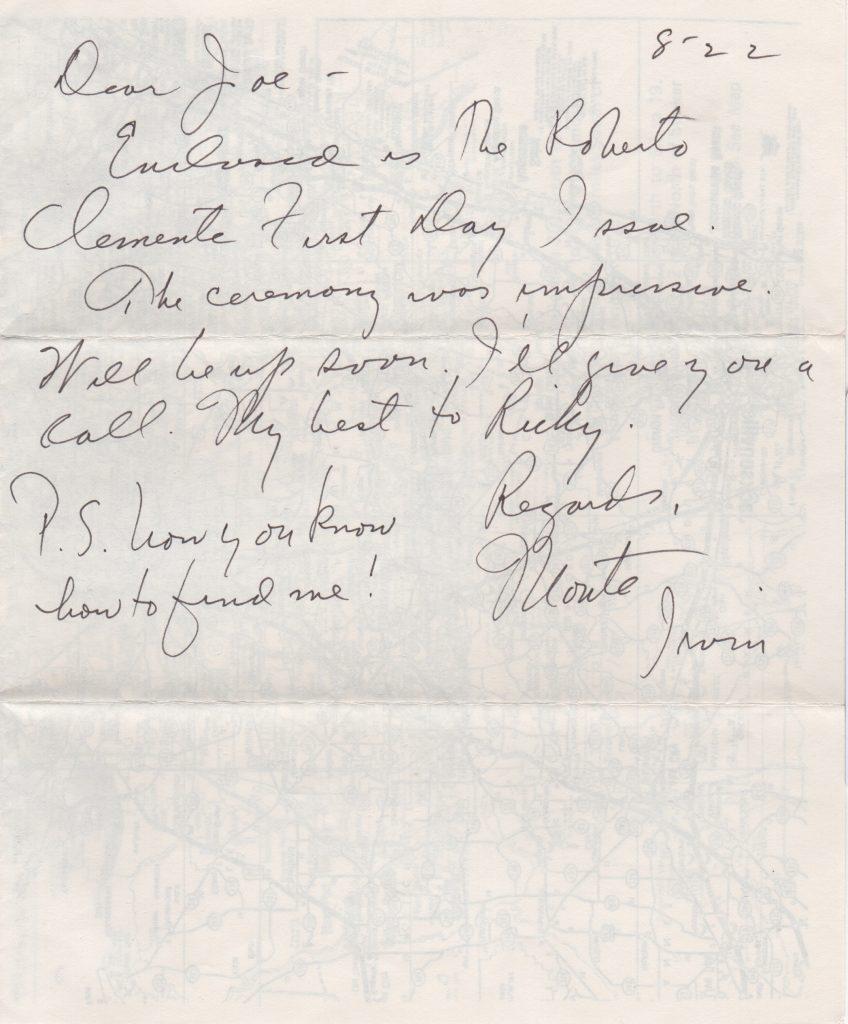 8-22
Dear Joe -
Enclosed is The Roberto
Clemente First Day Issue.
The ceremony was impressive.
Will be up soon. I'll give you a
call. My best to Ricky.
Regards,
P.S. now you know
how to find me!
Monte
Irvin